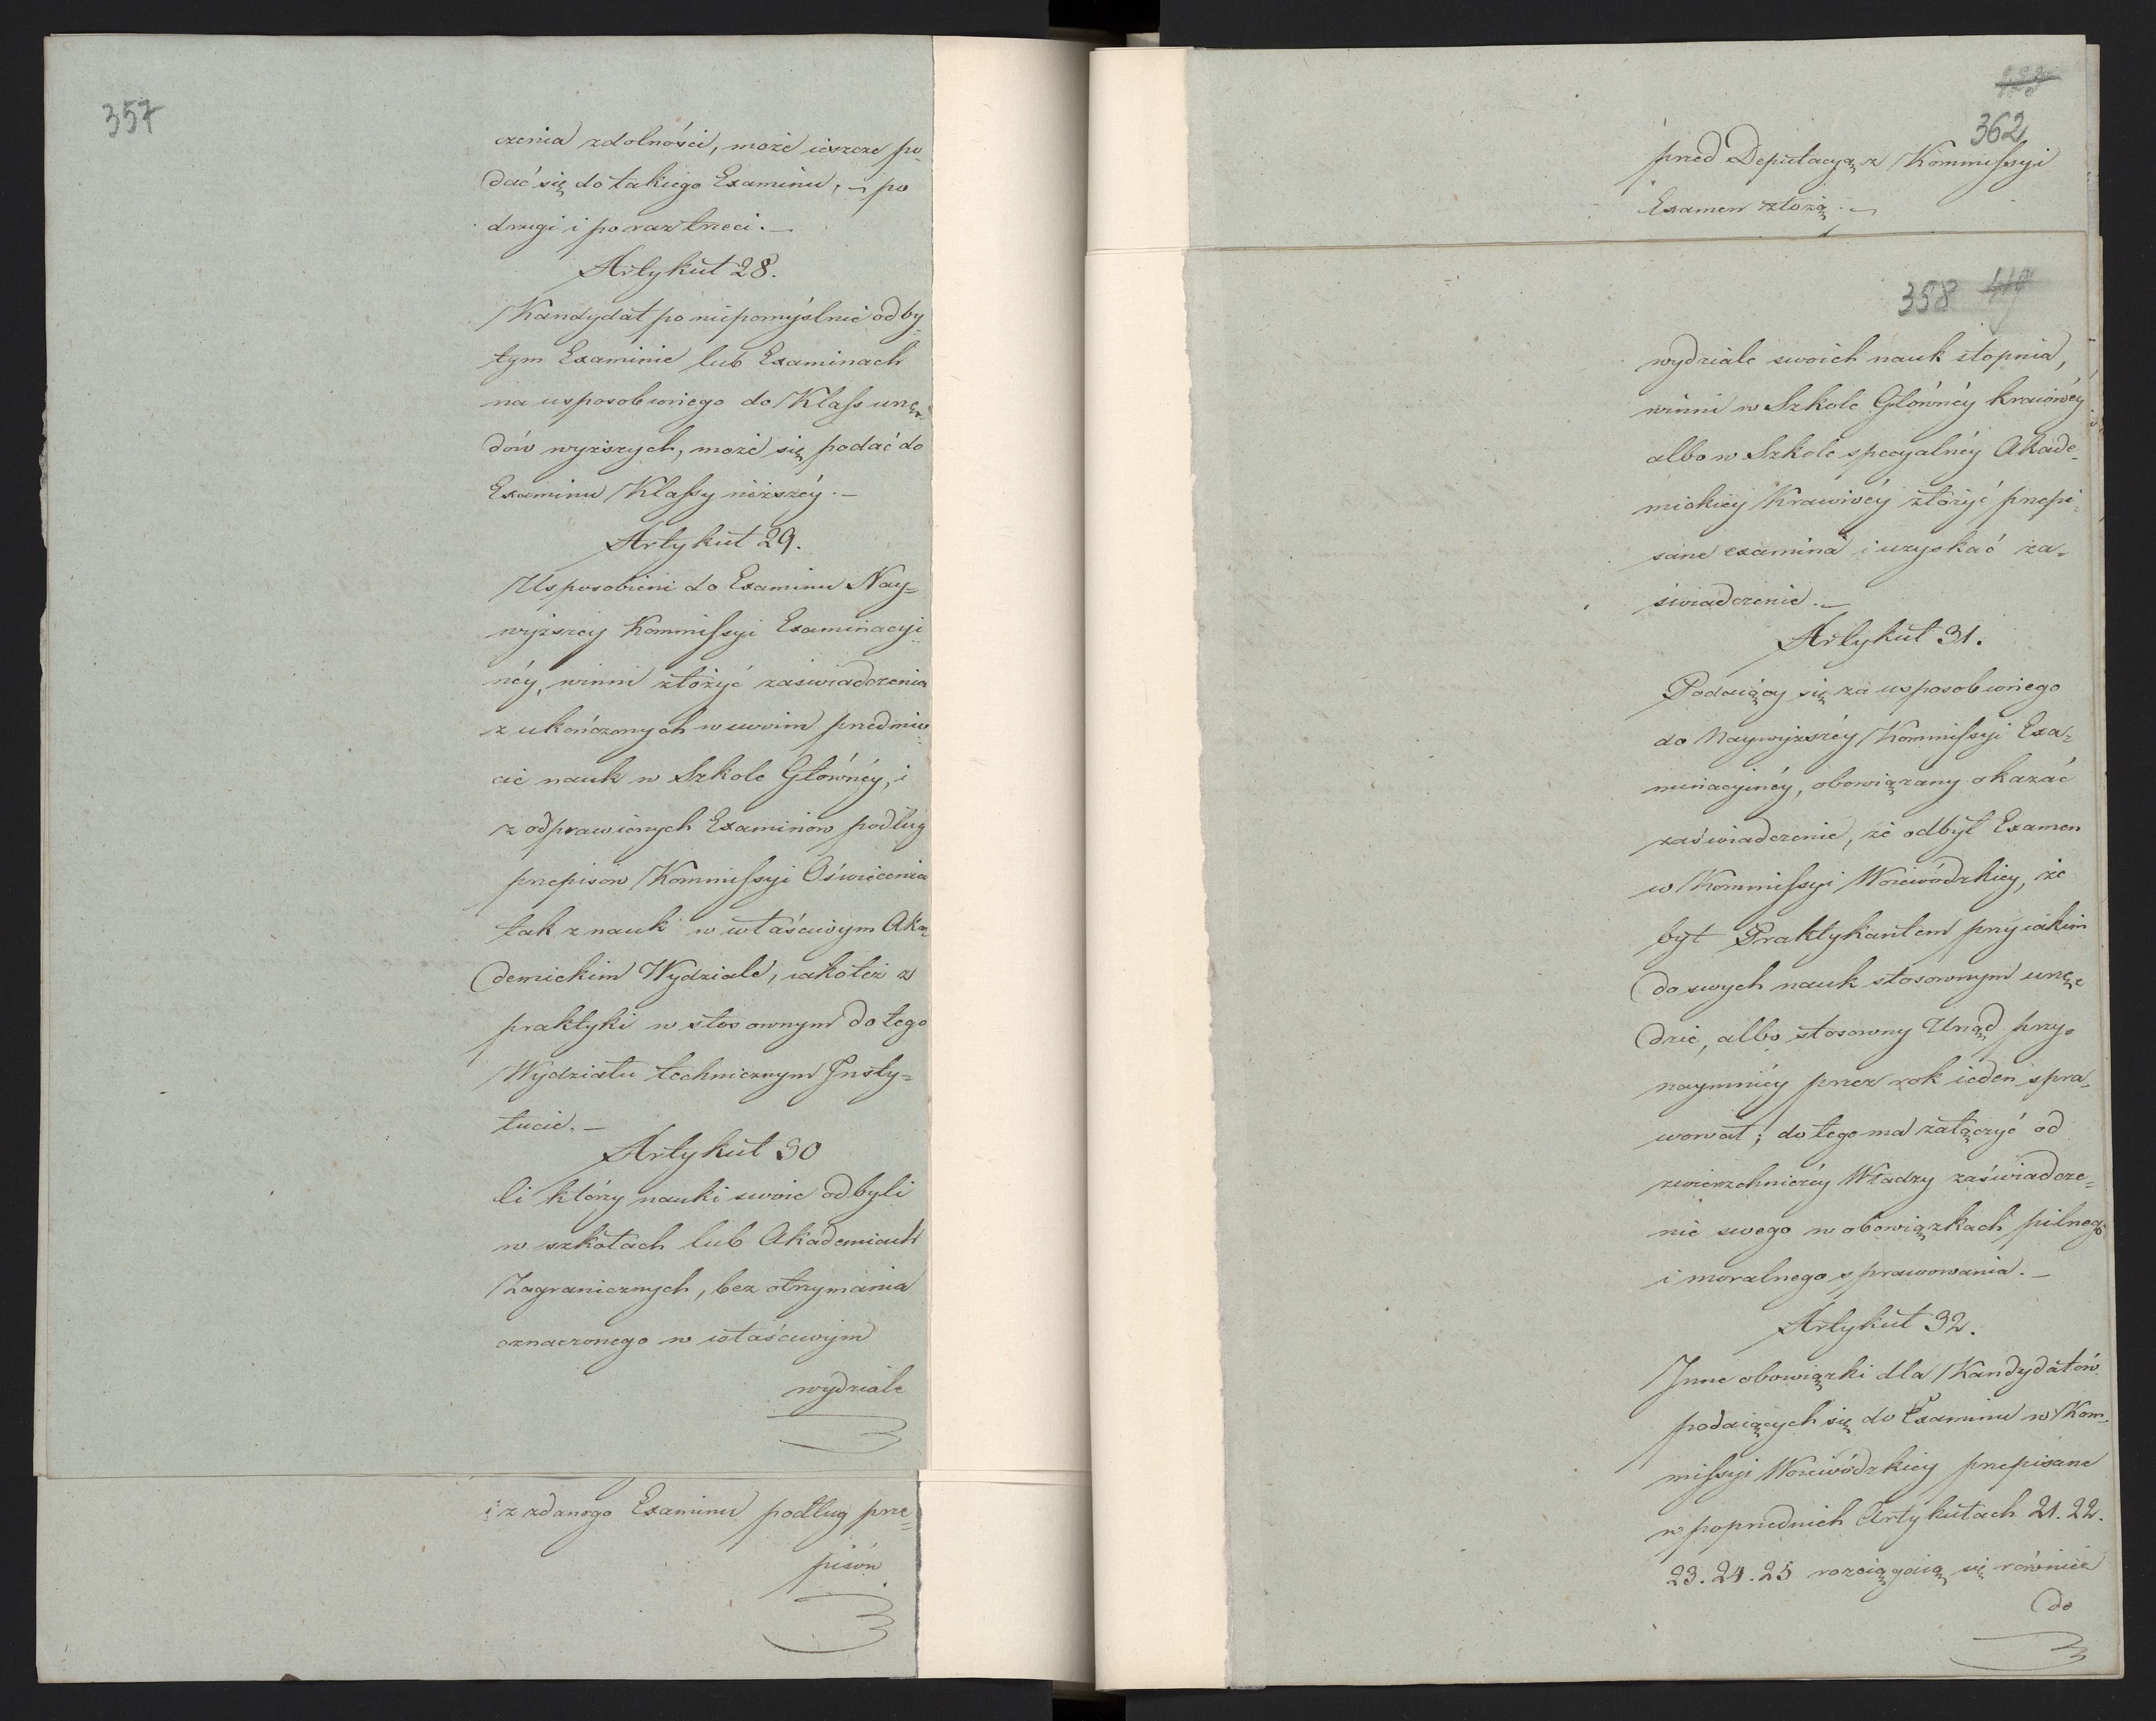 357
czenia zdolności, może ieszcze po-
dać się do takiego Examinu, – po
drugi i po raz trzeci. –
Artykuł 28.
Kandydat po niepomyślnie odby-
tym Examinie lub Examinach
na usposobionego do Klass urzę-
dów wyższych, może się podać do
Examinu Klassy niższéy. –
Artykuł 29.
Usposobieni do Examinu Nay=
wyższey Kommissyi Examinacyi
néy, winni złożyć zaświadczenia
z ukończonych w swoim przedmio
cie nauk w Szkole Głównéy, i
z odprawionych Examinów podług
przepisow Kommissyi Oświecenia
tak z nauk w właściwym Aka
demickim Wydziale, iakoteż z
praktyki w stosownym do tego
Wydziału technicznym Insty=
tucie. –
Artykuł 30
Ci którzy nauki swoie odbyli
w szkołach lub Akademiach
Zagranicznych, bez otrzymania
oznaczonego w właściwym
wydziale
i z zdanego Examinu podług prze=
pisów
362
przed Deputacyą z Kommissyi
Examen złożą. –
358
wydziale swoich nauk stopnia,
winni w Szkole Głównéy kraiowéy
albo w Szkole specyalnéy Akade-
mickiey Kraiowéy złożyć przepi-
sane examina i uzyskać za-
świadczenie. –
Artykuł 31.
Podaiący się za usposobionego
do Naywyższéy Kommissyi Exa-
minacyinéy, obowiązany okazać
zaświadczenie, że odbył Examen
w Kommissyi Woiewódzkiey, że
był Praktykantem przy iakim
do swych nauk stosownym urzę-
dzie, albo stosowny Urząd przy-
naymniéy przez rok ieden spra-
wował; do tego ma załączyć od
zwierzchniczéy Władzy zaświadcze-
nie swego w obowiązkach pilnego
i moralnego sprawowania. –
Artykuł 32.
Inne obowiązki dla Kandydatów
podaiących się do Examinu w Kom-
missyi Woiewódzkiey przepisane
w poprzednich Artykułach 21. 22.
23. 24. 25 rozciągaią się również
do